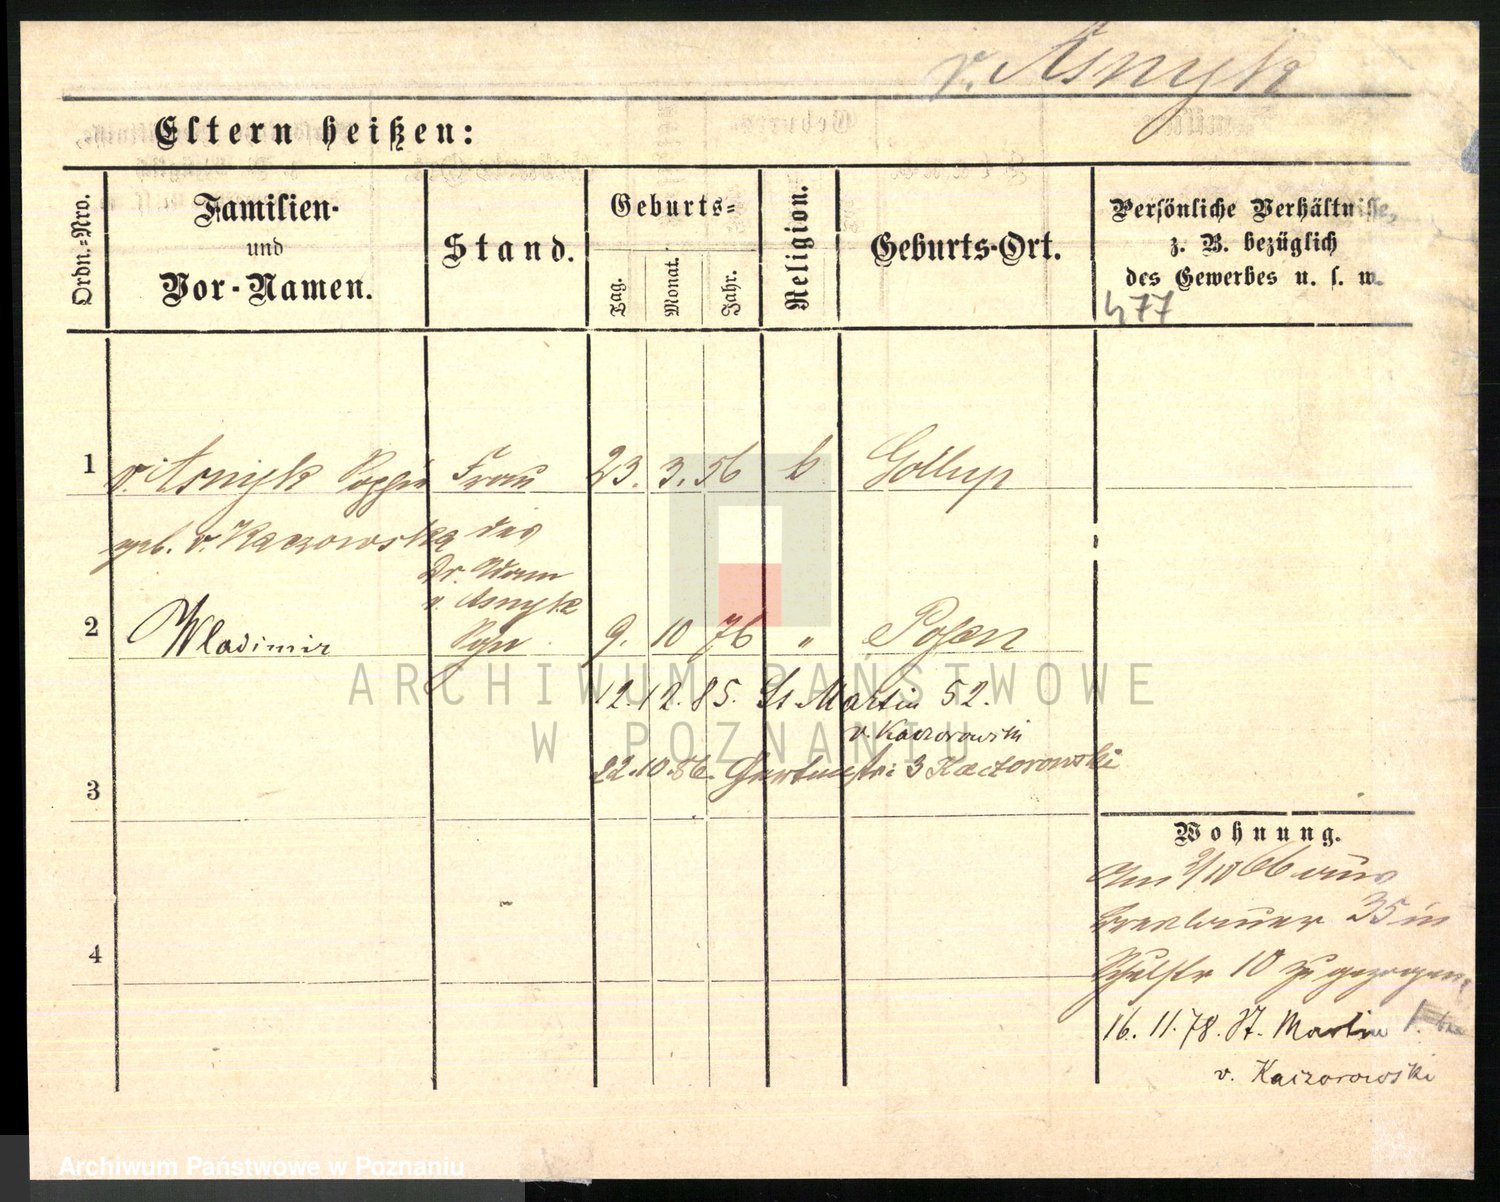 v. Asnyk
Eltern heißen:
Ordn.-Nro.
Familien-
und
Vor-Namen.
Stand.
Geburts-
Tag.
Monat.
Jahr.
Religion.
Geburts-Ort.
Persönliche Verhältnisse,
z. B. bezüglich
des Gewerbes u. s. w.
477
1 v. Asnyk Sophie Frau 23. 3. 56 k Gollup
geb. v. Kaczowska des
Dr. Adam
v. Asnyk
2 Wladimir Sohn 9. 10 76 " Posen
12. 12. 85. St Martin 52.
v. Kaczorowski
22. 10. 86. Gartenstr: 3 Kaczorowski
3
Wohnung.
Am 2/10 66 aus
Breslauer 35 in
4
Schulstr 10 zu gezogen.
16. 11. 78. St. Martin
v. Kaczorowski
ARCHIWUM PAŃSTWOWE
W POZNANIU
Archiwum Państwowe w Poznaniu